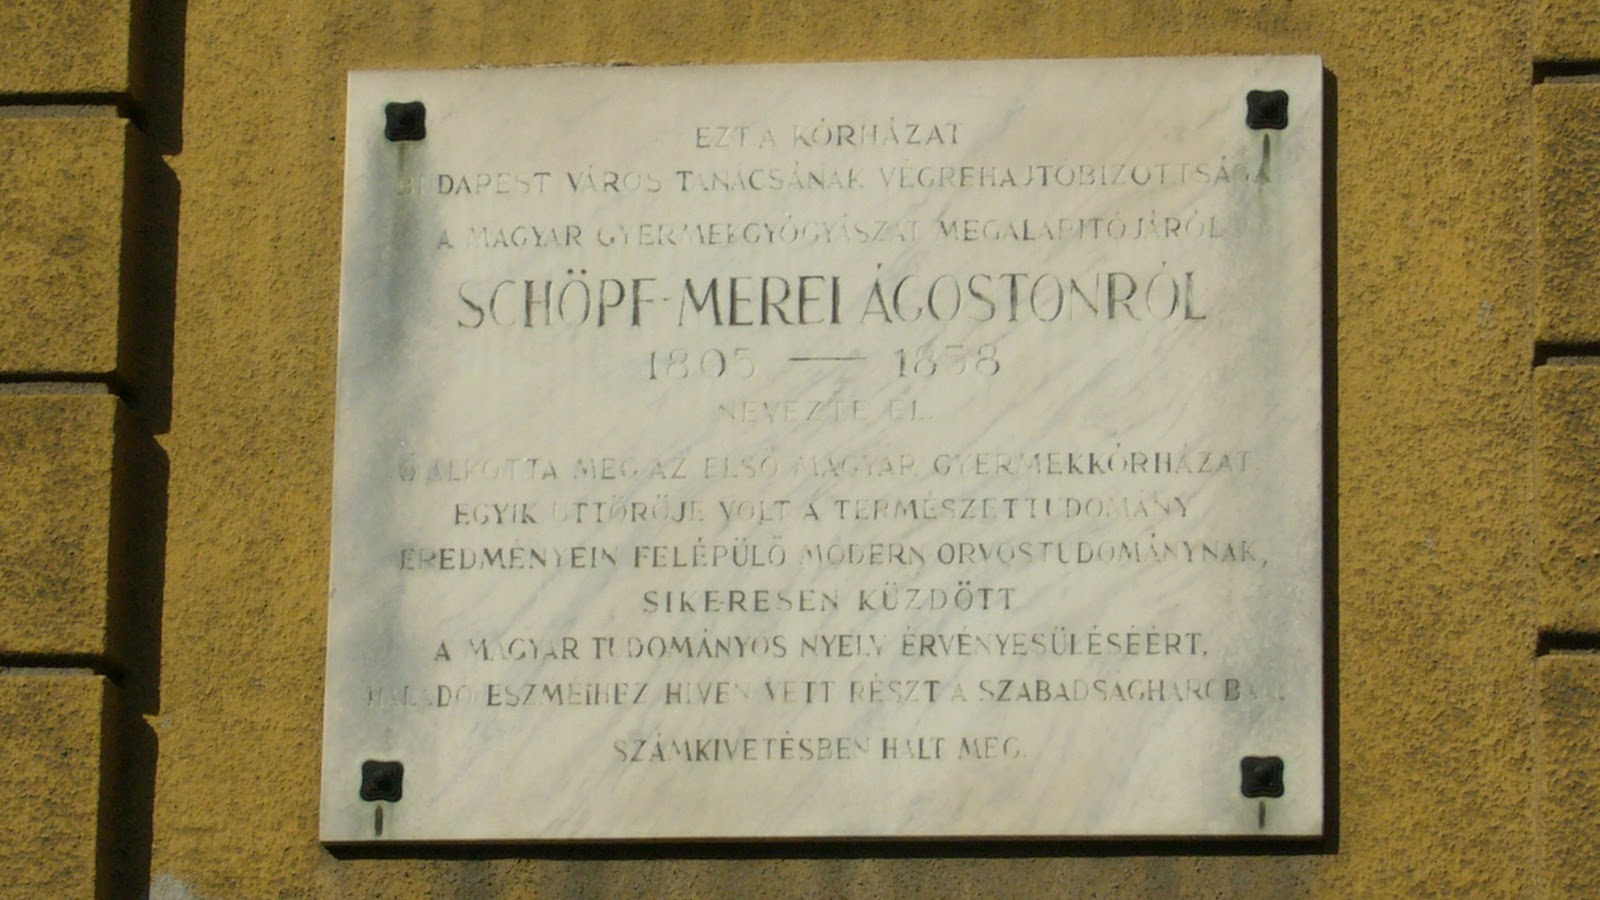 EZT A KÓRHÁZAT
BUDAPEST VÁROS TANÁCSÁNAK VÉGREHAJTÓBIZOTTSÁGA
A MAGYAR GYERMEKGYÓGYÁSZAT MEGALAPITÓJÁRÓL
SCHÖPF-MEREI ÁGOSTONRÓL
1805 — 1858
NEVEZTE EL.
Ő ALKOTTA MEG AZ ELSŐ MAGYAR GYERMEKKÓRHÁZAT,
EGYIK UTTÖRŐJE VOLT A TERMÉSZETTUDOMÁNY
EREDMÉNYEIN FELÉPÜLŐ MODERN ORVOSTUDOMÁNYNAK,
SIKERESEN KÜZDÖTT
A MAGYAR TUDOMÁNYOS NYELV ÉRVÉNYESÜLÉSÉÉRT,
HALADÓ ESZMÉIHEZ HIVEN VETT RÉSZT A SZABADSÁGHARCBAN.
SZÁMKIVETÉSBEN HALT MEG.